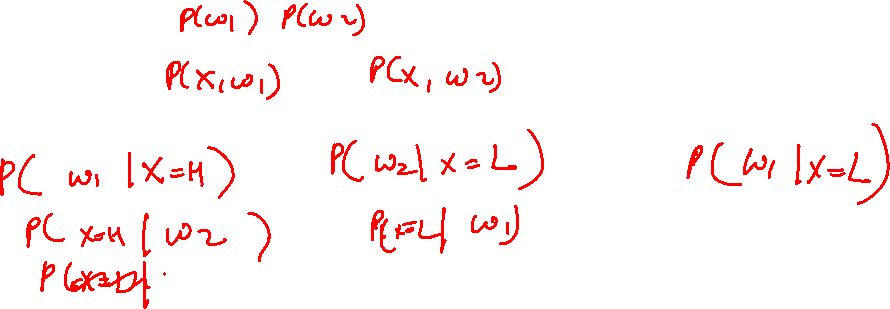 P(ω1) P(ω2)
P(x, ω1) P(x, ω2)
P( ω1 | X=H) P( ω2 | x=L) P( ω1 | X=L)
P( x=H | ω2 ) P(x=L| ω1)
P(